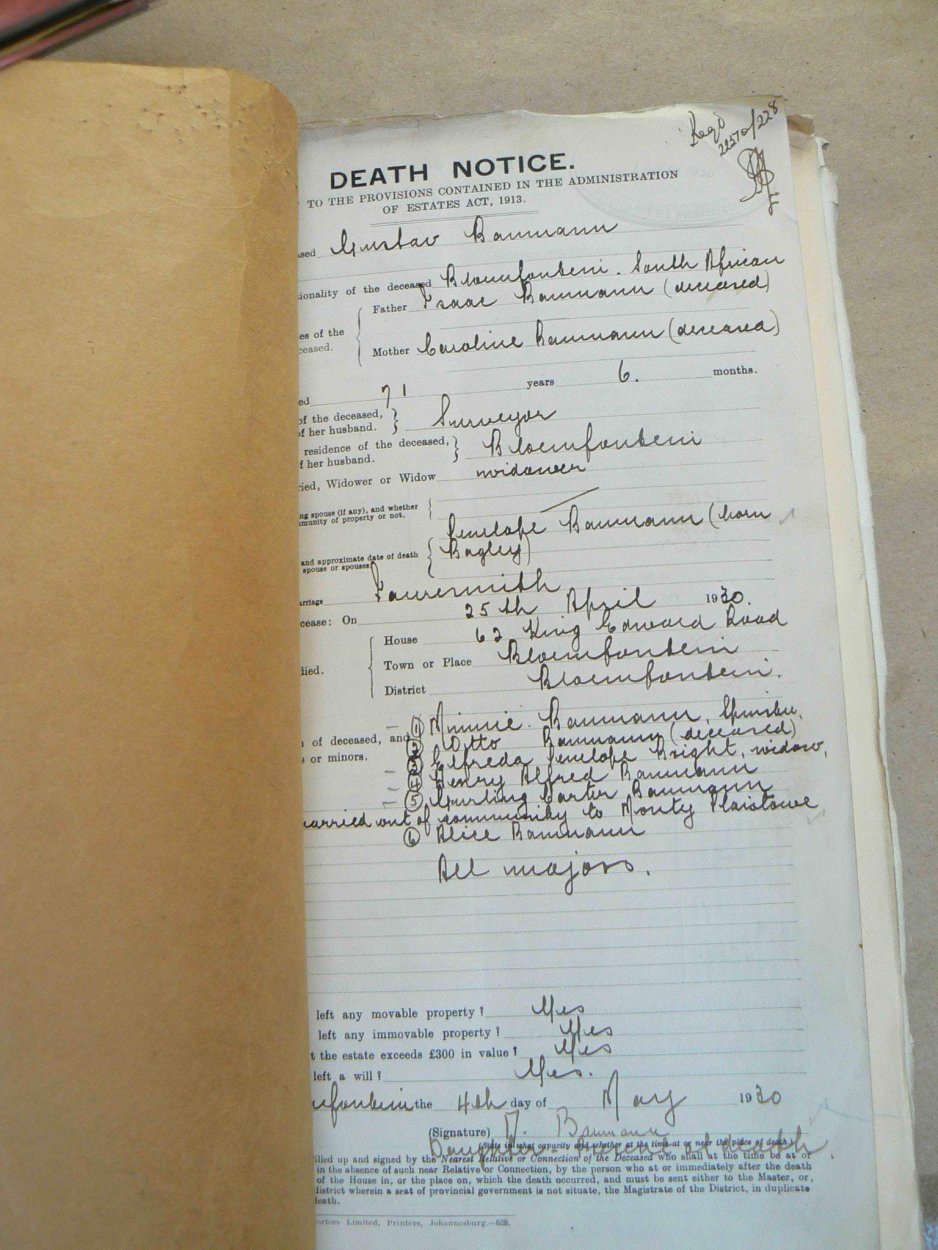 Reqd
DEATH NOTICE.
TO THE PROVISIONS CONTAINED IN THE ADMINISTRATION
OF ESTATES ACT, 1913.
ased Gustav Baumann
ionality of the deceased Bloemfontein. South African
Father Isaac Baumann (deceased)
es of the
ceased.
Mother Caroline Baumann (deceased)
ed 71 years 6. months.
of the deceased,
f her husband. Surveyor
residence of the deceased,
f her husband. Bloemfontein
ied, Widower or Widow widower
ng spouse (if any), and whether
mmunity of property or not.
Penelope Baumann (born
and approximate date of death
spouse or spouses Bagley)
arriage Fauresmith
cease: On 25th April 1930.
House 62 King Edward Road
lied. Town or Place Bloemfontein
District Bloemfontein.
① Minnie Baumann, Spinster,
of deceased, and ② Otto Baumann (deceased)
s or minors. ③ Elfreda Penelope Bright, widow,
④ Henry Alfred Baumann
⑤ Gurling Carter Baumann
married out of community to Monty Plaistowe
⑥ Alice Baumann
All majors.
left any movable property? Yes
left any immovable property? Yes
t the estate exceeds £300 in value? Yes
left a will? Yes.
mfontein the 4th day of May 1930
(Signature) M. Baumann
(State in what capacity and whether at the time at or near the place of death.)
Daughter - Present at death
illed up and signed by the Nearest Relative or Connection of the Deceased who shall at the time be at or
in the absence of such near Relative or Connection, by the person who at or immediately after the death
of the House in, or the place on, which the death occurred, and must be sent either to the Master, or,
district wherein a seat of provincial government is not situate, the Magistrate of the District, in duplicate
leath.
ortors Limited, Printers, Johannesburg.